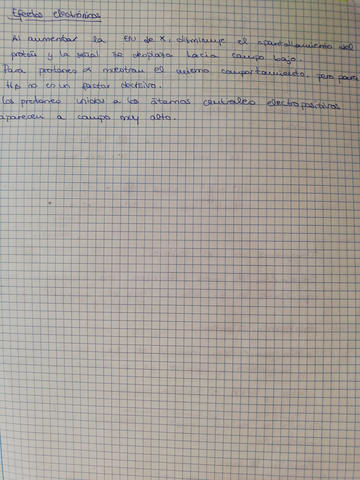 Efectos electrónicos
Al aumentar la EN de X, disminuye el apantallamiento del
protón y la señal se desplaza hacia campo bajo.
Para protones α muestran el mismo comportamiento, pero para
no es un factor decisivo.
Los protones unidos a los átomos centrales electropositivos
aparecen a campo muy alto.